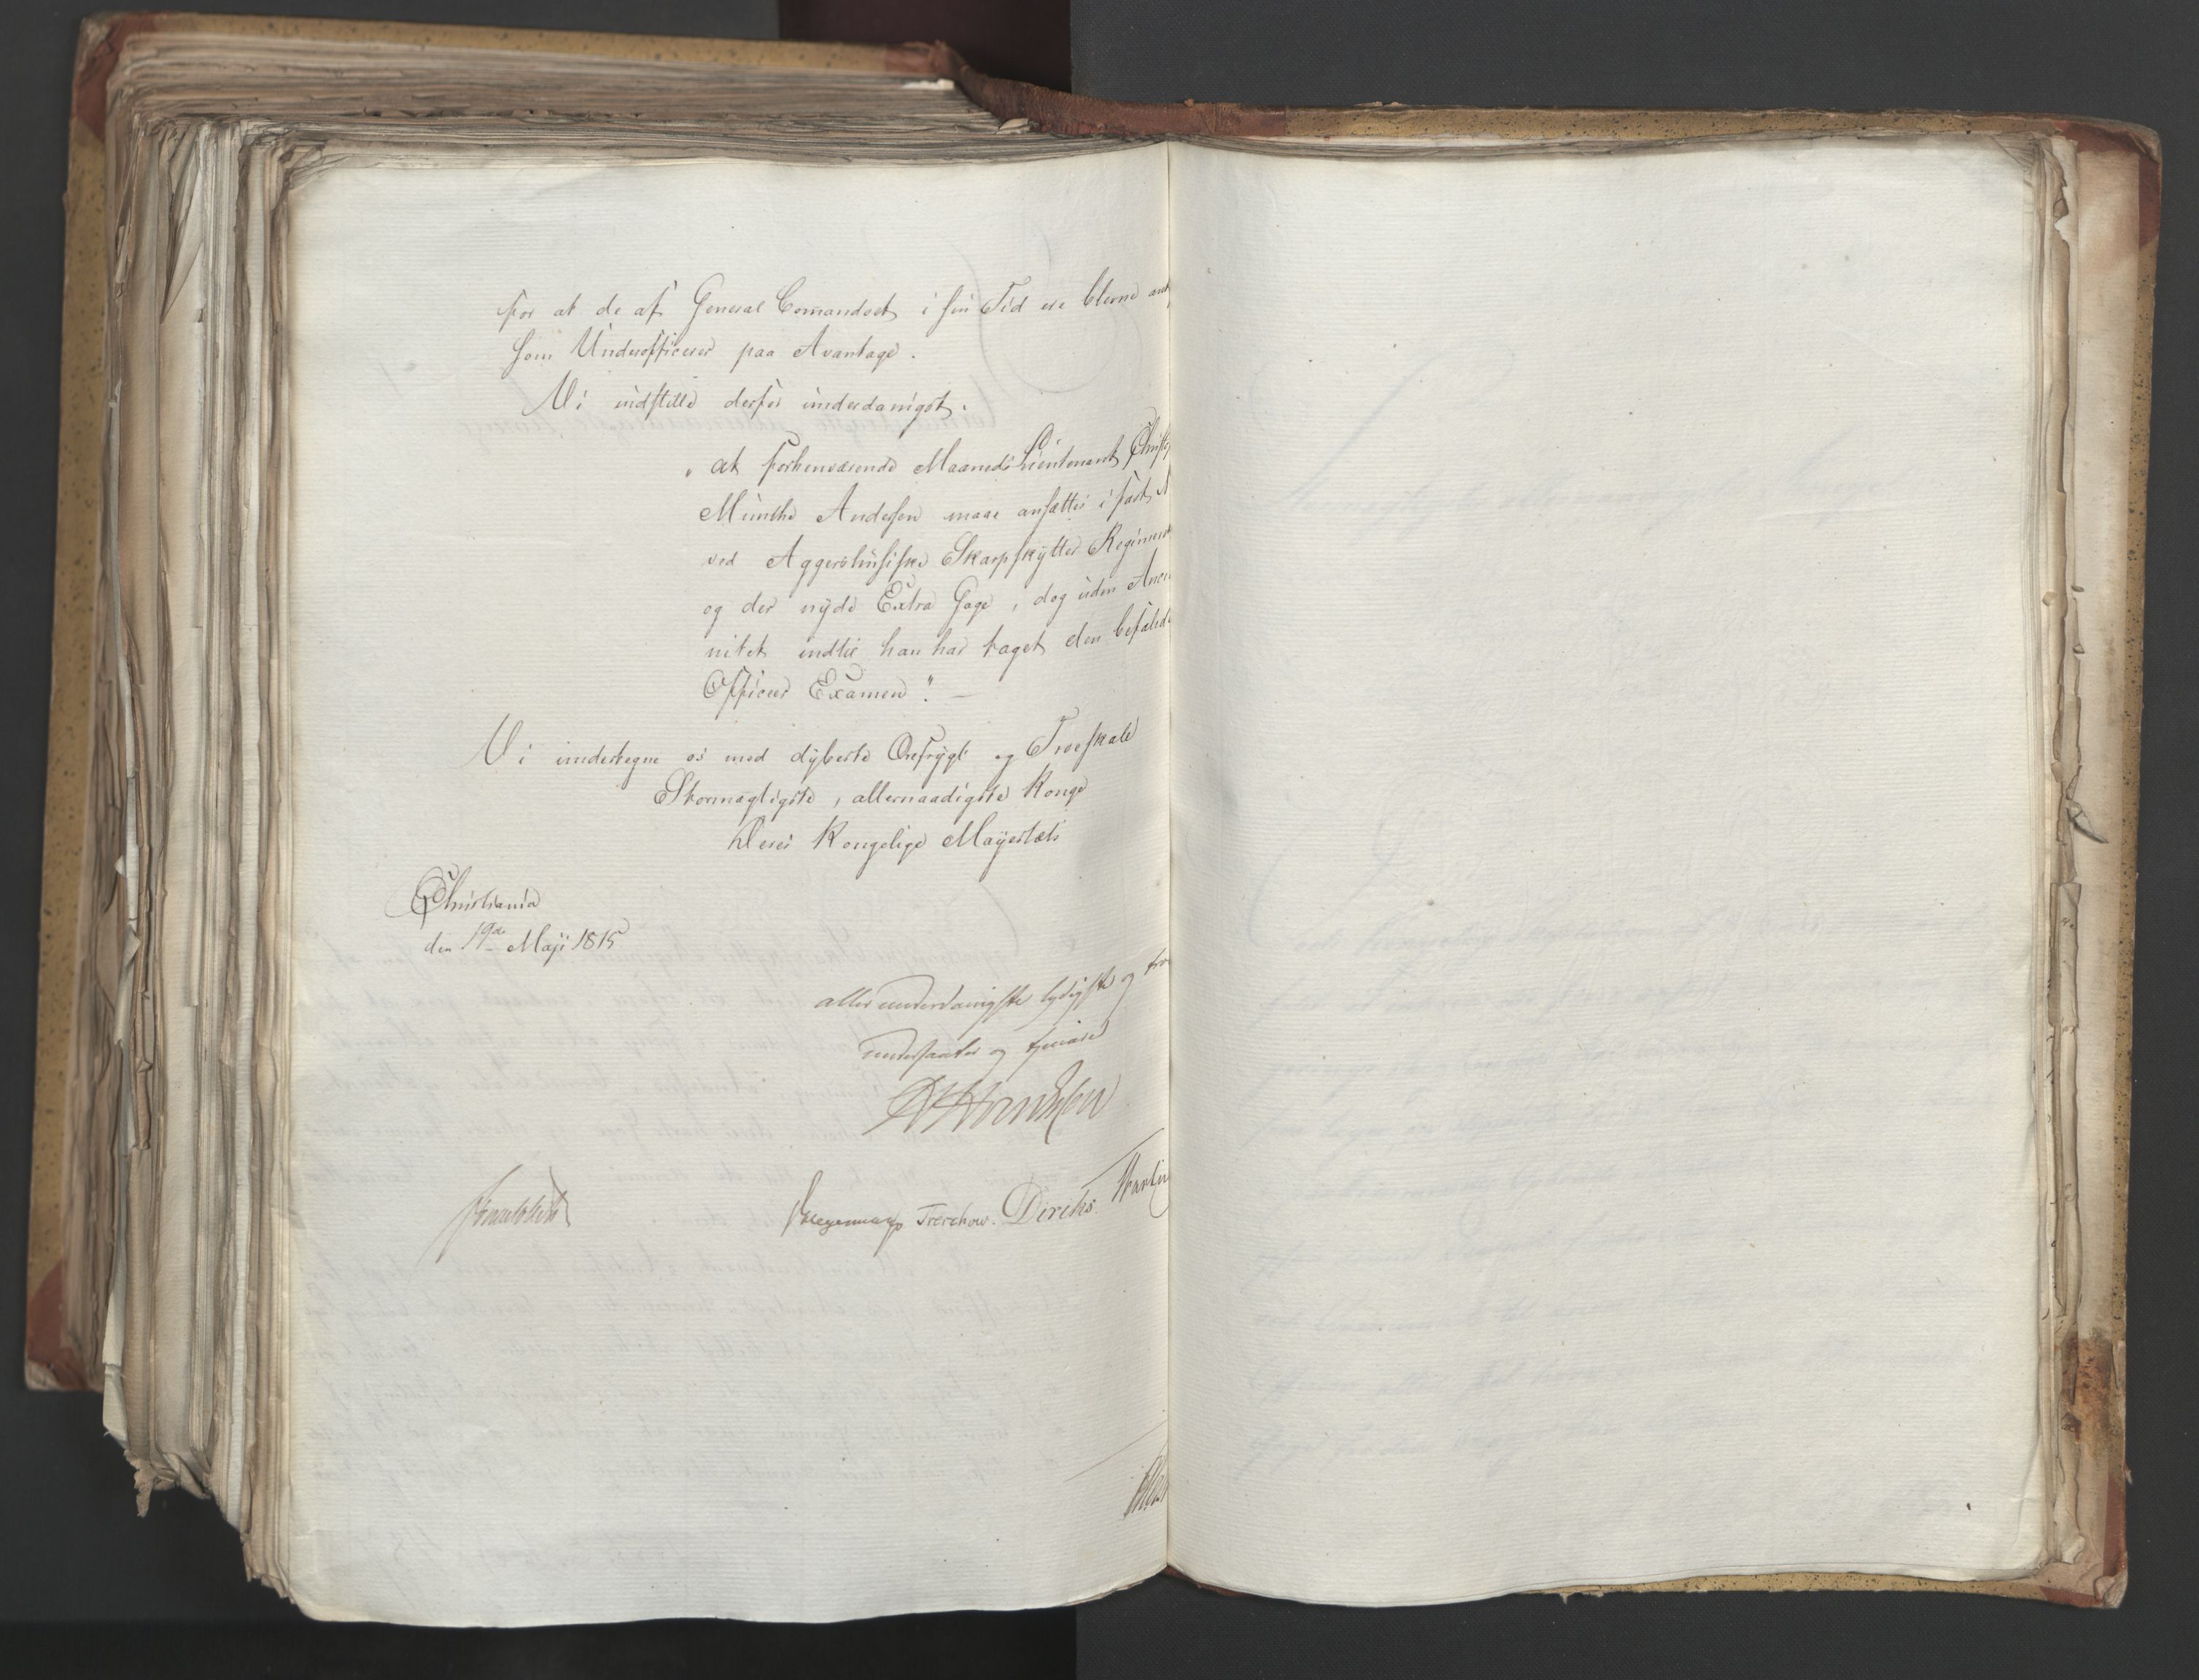 for at de af General Comandoet i sin Tid ere blevne
som Underofficerer paa Avantage.
Vi indstille derfor underdanigst.
"at forhenværende Maaneds Lieutenant
Munthe Andersen maae ansættes i fast
ved Aggershusiske Skarpskytter Regiment
og der nyde Extra Gage, dog uden Ancie
nitet indtil han har taget den befalede
Officeer Examen". —
Vi undertegne os med dybeste Ærefrygt og Troeskab
Stormægtigste, allernaadigste Konge
Deres Kongelige Mayestæts
Christiania
den 19de Maji 1815
allerunderdanigste lydigste og tro
undersaatter og tjenere
Diriks.
Treschow.